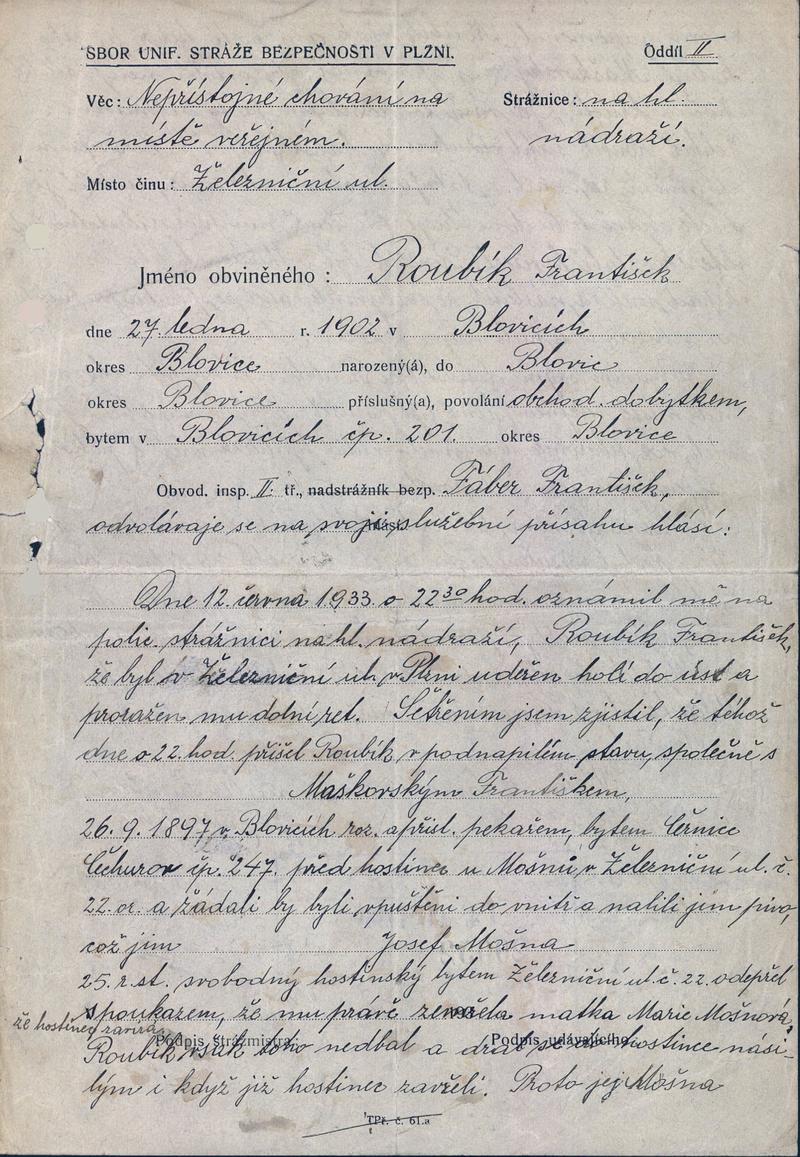 SBOR UNIF. STRÁŽE BEZPEČNOSTI V PLZNI. Oddíl II
Věc: Nepřístojné chování na Strážnice: na hl.
místě veřejném. nádraží.
Místo činu: Železniční ul.
Jméno obviněného: Roubík František
dne 27. ledna r. 1902 v Blovicích
okres Blovice narozený(á), do Blovic
okres Blovice příslušný(a), povolání obchod. dobytkem,
bytem v Blovicích čp. 201. okres Blovice
Obvod. insp. II tř., nadstrážník bezp. Fáber František,
odvolávaje se na svoji služební přísahu hlásí:
Dne 12. června 1933 o 22 30 hod. oznámil mě na
polic. strážnici na hl. nádraží, Roubík František,
že byl v Železniční ul. v Plzni udeřen holí do úst a
proražen mu dolní ret. Šetřením jsem zjistil, že téhož
dne o 22. hod. přišel Roubík v podnapilém stavu, společně s
Maškovským Františkem,
26. 9. 1897 v Blovicích roz. a přísl. pekařem, bytem Černice
Čechurov čp. 247. před hostinec u Mošnů v Železniční ul. č.
22. or. a žádali by byli vpuštěni do vnitř a nalili jim pivo,
což jim Josef Mošna
25. r. st. svobodný hostinský bytem Železniční ul. č. 22. odepřel
s poukazem, že mu právě zemřela matka Marie Mošnová,
že hostinec zavírá.
Podpis strážmistra: Podpis udávajícího:
Roubík však toho nedbal a dral se do hostince nási-
lým i když již hostinec zavřeli. Proto jej Mošna
TPř. č. 61.a